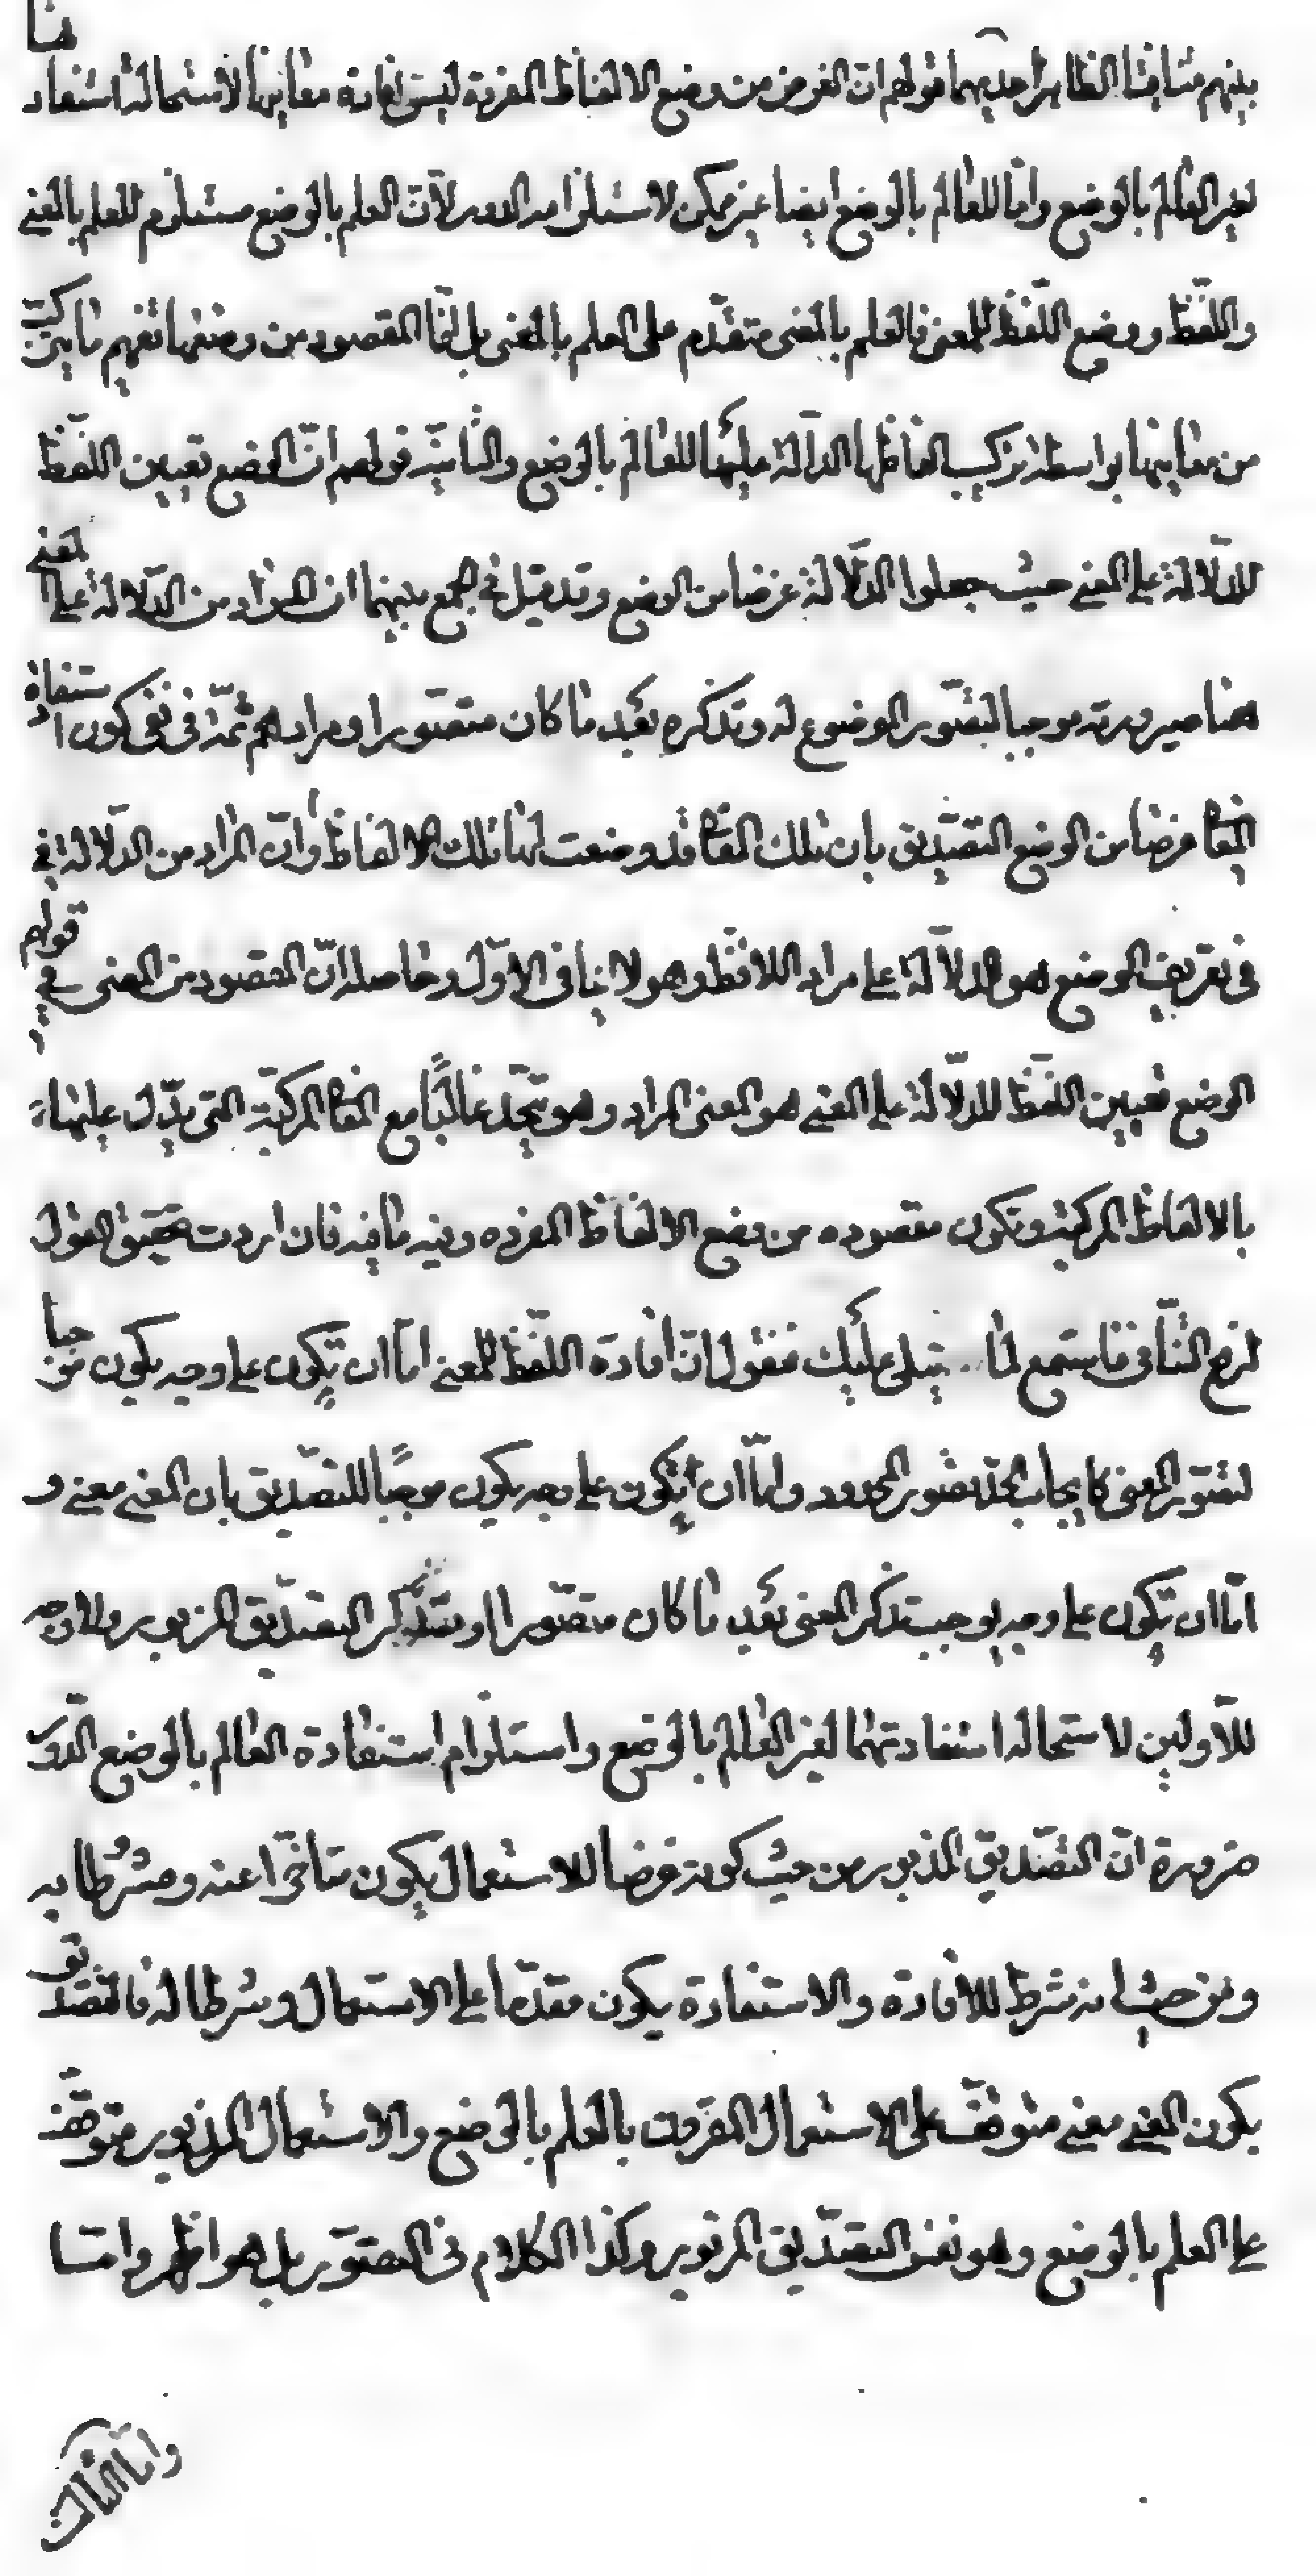 بينهم متنافيتا الظاهر احديهما قولهم ان الغرض من وضع الالفاظ المفردة ليس افادة معانيها لاستحالة استفادتها
لغير العالم بالوضع واما للعالم بالوضع ايضا غير ممكن لاستلزامه الدور لان العلم بالوضع مستلزم للعلم بالمعنى
واللفظ ووضع اللفظ للمعنى فالعلم بالمعنى متقدم على العلم بالمعنى بل انما المقصود من وضعها تفهيم ما يتركب
من معانيها بواسطة تركيب الفاظها الدالة عليها للعالم بالوضع والثانية قولهم ان الوضع تعيين اللفظ
للدلالة على المعنى حيث جعلوا الدلالة غرضا من الوضع وقد قيل في الجمع بينهما ان المراد من الدلالة على المعنى
هنا صيرورته موجبا لتصور الموضوع له وتذكره بعد ما كان متصورا ومرادهم ثمة في نفي كون استفادة
المعا غرضا من الوضع التصديق بان تلك المعا قد وضعت لها تلك الالفاظ وان المراد من الدلالة في
في تعريف الوضع هو الدلالة على مراد اللافظ وهو لا ينافي الاول وحاصله ان المقصود من المعنى في قولهم
الوضع تعيين اللفظ للدلالة على المعنى هو المعنى المراد وهو يتحد غالبا مع المعا المركبة التي يدل عليها
بالالفاظ المركبة وتكون مقصوده من وضع الالفاظ المفرده وفيه ما فيه فان اردت تحقيق القول
لرفع التنافي فاستمع لما يتلى عليك فنقول ان افادة اللفظ للمعنى اما ان يكون على وجه يكون موجبا
لتصور المعنى كايجاب الحد تصور المحدود واما ان يكون على وجه يكون موجبا للتصديق بان المعنى معنى و
اما ان يكون على وجه يوجب تذكر المعنى بعد ما كان متصورا او يتذكر التصديق المزبور ولا وجه
للاولين لاستحالة استفادتهما لغير العالم بالوضع واستلزام استفادة العالم بالوضع الدور
ضرورة ان التصديق المذبور من حيث كونه غرضا للاستعمال يكون متاخرا عنه ومشروطا به
ومن حيث انه شرط للافادة والاستفادة يكون مقدما على الاستعمال وشرطا له فالتصديق
بكون المعنى معنى متوقف على الاستعمال المقرون بالعلم بالوضع والاستعمال المذبور متوقف
على العلم بالوضع وهو نفس التصديق المزبور وكذا الكلام في التصور بل هو اظهر واما
واما الثاني